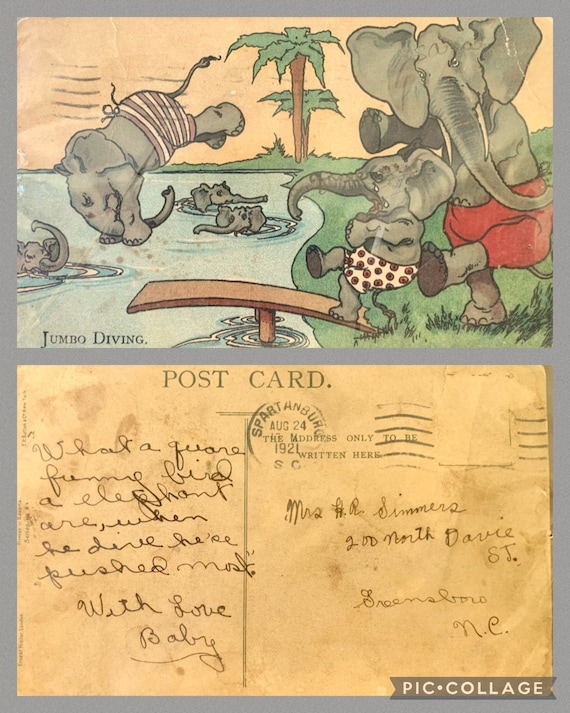 JUMBO DIVING.
POST CARD.
SPARTANBURG
AUG 24
1921
S C
THE ADDRESS ONLY TO BE
WRITTEN HERE
What a quare
funny bird
a elephant
are, when
he dive he'se
pushed most
With Love
Baby
Mrs H.R. Simmers
200 North Davie
ST.
Greensboro
N.C.
PIC•COLLAGE